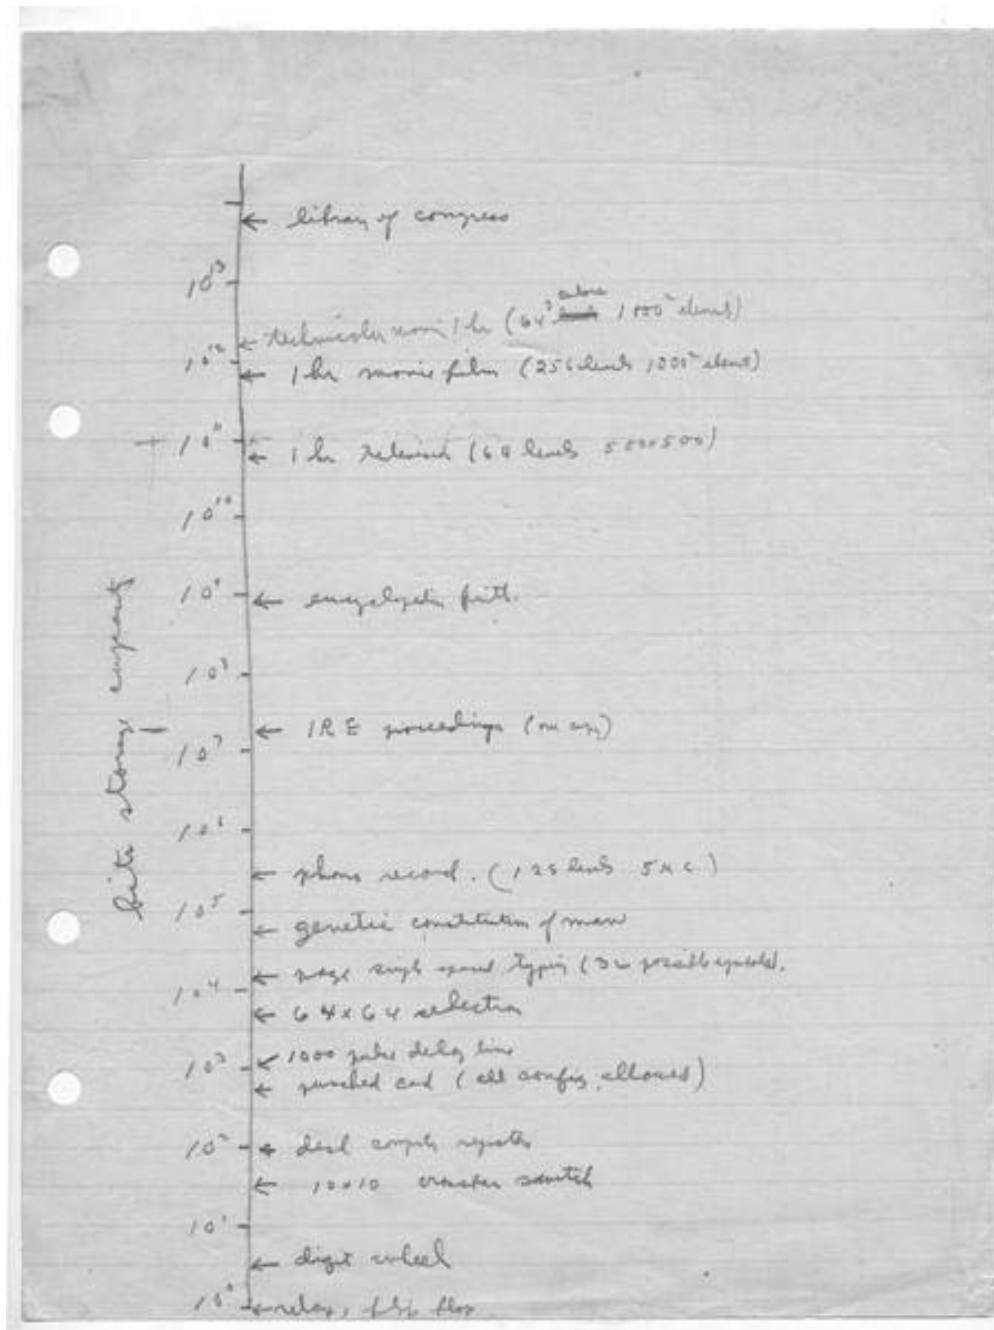 library of congress
10^13
technicolor movie 1 hr (64^3 colors 1000^2 elements)
10^12
1 hr movie film (256 levels 1000^2 elements)
10^11
1 hr television (64 levels 500x500)
10^10
10^9
encyclopedia britt.
10^8
IRE proceedings (one copy)
10^7
bits storage capacity
10^6
phono record. (128 levels 5 KC)
10^5
genetic constitution of man
page single spaced typing (32 possible symbols).
10^4
64x64 selectron
1000 pulse delay line
10^3
punched card (all config. allowed)
10^2
desk register
10x10 crossbar switch
10^1
digit wheel
10^0
relay, flip flop